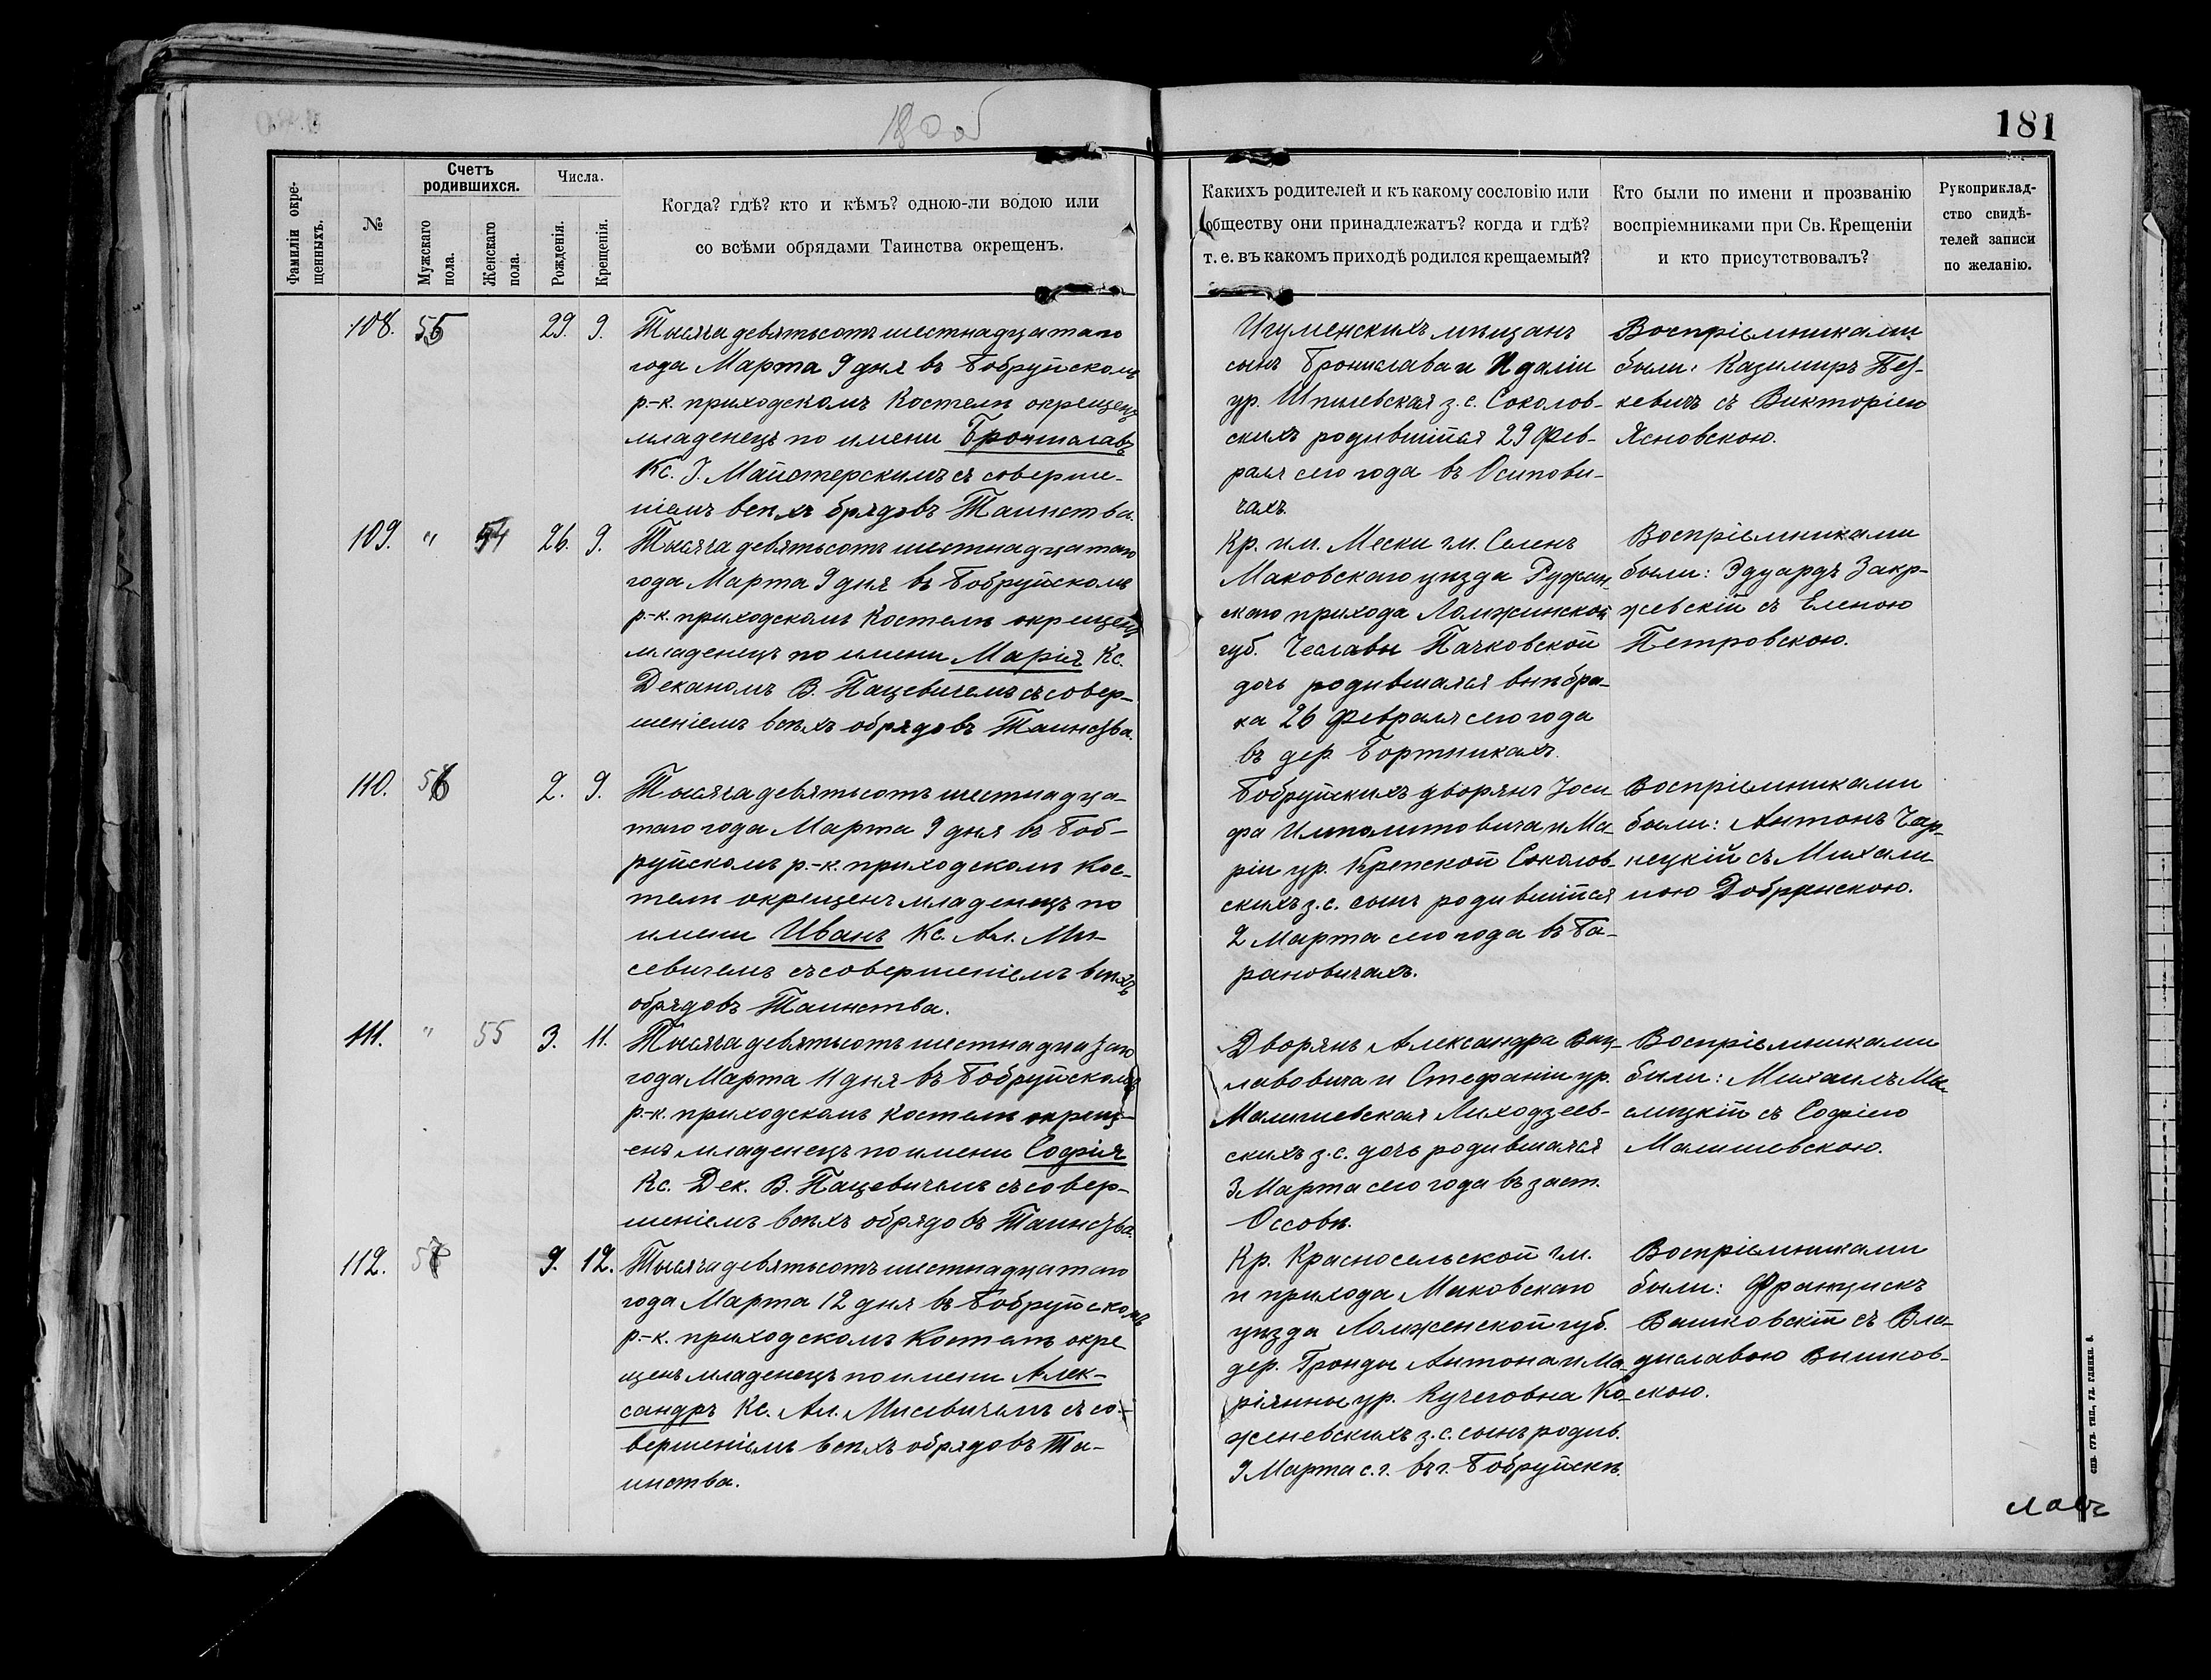 180 об
181
Фамиліи окре-
щенныхъ.
№
Счетъ
родившихся.
Мужскаго
пола.
Женскаго
пола.
Числа.
Рожденія.
Крещенія.
Когда? гдѣ? кто и кѣмъ? одною-ли водою или
со всѣми обрядами Таинства окрещенъ.
Какихъ родителей и къ какому сословію или
обществу они принадлежатъ? когда и гдѣ?
т. е. въ какомъ приходѣ родился крещаемый?
Кто были по имени и прозванію
воспріемниками при Св. Крещеніи
и кто присутствовалъ?
Рукоприклад-
ство свидѣ-
телей записи
по желанію.
108. 55 29. 9.
Тысяча девятьсотъ шестнадцатаго
года Марта 9 дня въ Бобруйскомъ
р.-к. приходскомъ Костелѣ окрещенъ
младенецъ по имени Брониславъ
Кс. І. Майстерскимъ съ соверше-
ніемъ всѣхъ брядовъ Таинства.
Игуменскихъ мѣщанъ
сынъ Бронислава и Идаліи
ур. Шпилевская з. с. Соколов-
скихъ родившійся 29 Фев-
раля сего года въ Осипови-
чахъ.
Воспріемниками
были: Казимиръ
кевичъ съ Викторіею
Ясновскою.
109. " 54 26. 9.
Тысяча девятьсотъ шестнадцатаго
года Марта 9 дня въ Бобруйскомъ
р.-к. приходскомъ Костелѣ окрещенъ
младенецъ по имени Марія Кс.
Деканомъ В. Пацевичемъ съ совер-
шеніемъ всѣхъ обрядовъ Таинства.
Кр. им. Мески гм. Селенъ
Маковскаго уѣзда Ружан-
скаго прихода Ломжинской
губ. Чеславы Пачковской
дочь родившаяся внѣ бра-
ка 26 Февраля сего года
въ дер. Бортникахъ.
Воспріемниками
были: Эдуардъ Закр-
жевскій съ Еленою
Петровскою.
110. 56 2. 9.
Тысяча девятьсотъ шестнадца-
таго года Марта 9 дня въ Боб-
руйскомъ р.-к. приходскомъ Кос-
телѣ окрещенъ младенецъ по
имени Иванъ Кс. Ал. Ми-
севичемъ съ совершеніемъ всѣхъ
обрядовъ Таинства.
Бобруйскихъ дворянъ Іоси-
фа Ипполитовича и Ма-
ріи ур. Крепской Соколов-
скихъ з. с. сынъ родившійся
2 Марта сего года въ Ба-
рановичахъ.
Воспріемниками
были: Антонъ Чар-
нецкій съ Михали-
ною Добрянскою.
111. " 55 3. 11.
Тысяча девятьсотъ шестнадцатаго
года Марта 11 дня въ Бобруйскомъ
р.-к. приходскомъ Костелѣ окрещ-
енъ младенецъ по имени Софія
Кс. Дек. В. Пацевичемъ съ совер-
шеніемъ всѣхъ обрядовъ Таинства.
Дворянъ Александра Вац-
лавовича и Стефаніи ур.
Малишевская Лиходзеев-
скихъ з. с. дочь родившаяся
3 Марта сего года въ заст.
Оссовѣ.
Воспріемниками
были: Михаилъ Ма-
слицкій съ Софіею
Малишевскою.
112. 57 9. 12.
Тысяча девятьсотъ шестнадцатаго
года Марта 12 дня въ Бобруйскомъ
р.-к. приходскомъ Костелѣ окре
щенъ младенецъ по имени Алек-
сандръ Кс. Ал. Мисевичемъ съ со-
вершеніемъ всѣхъ обрядовъ Та-
инства.
Кр. Красносельской гм.
и прихода Маковскаго
уѣзда Ломженской губ.
дер. Гронды Антона и Ма-
ріянны ур. Кучеговна Ко-
женевскихъ з. с. сынъ родив.
9 Марта с. г. въ г. Бобруйскѣ.
Воспріемниками
были: Францискъ
Вашковскій съ Вла-
диславою Вашков-
скою.
СПБ. СТБ. ТИП., УД. ГЛИНКИ. 8.